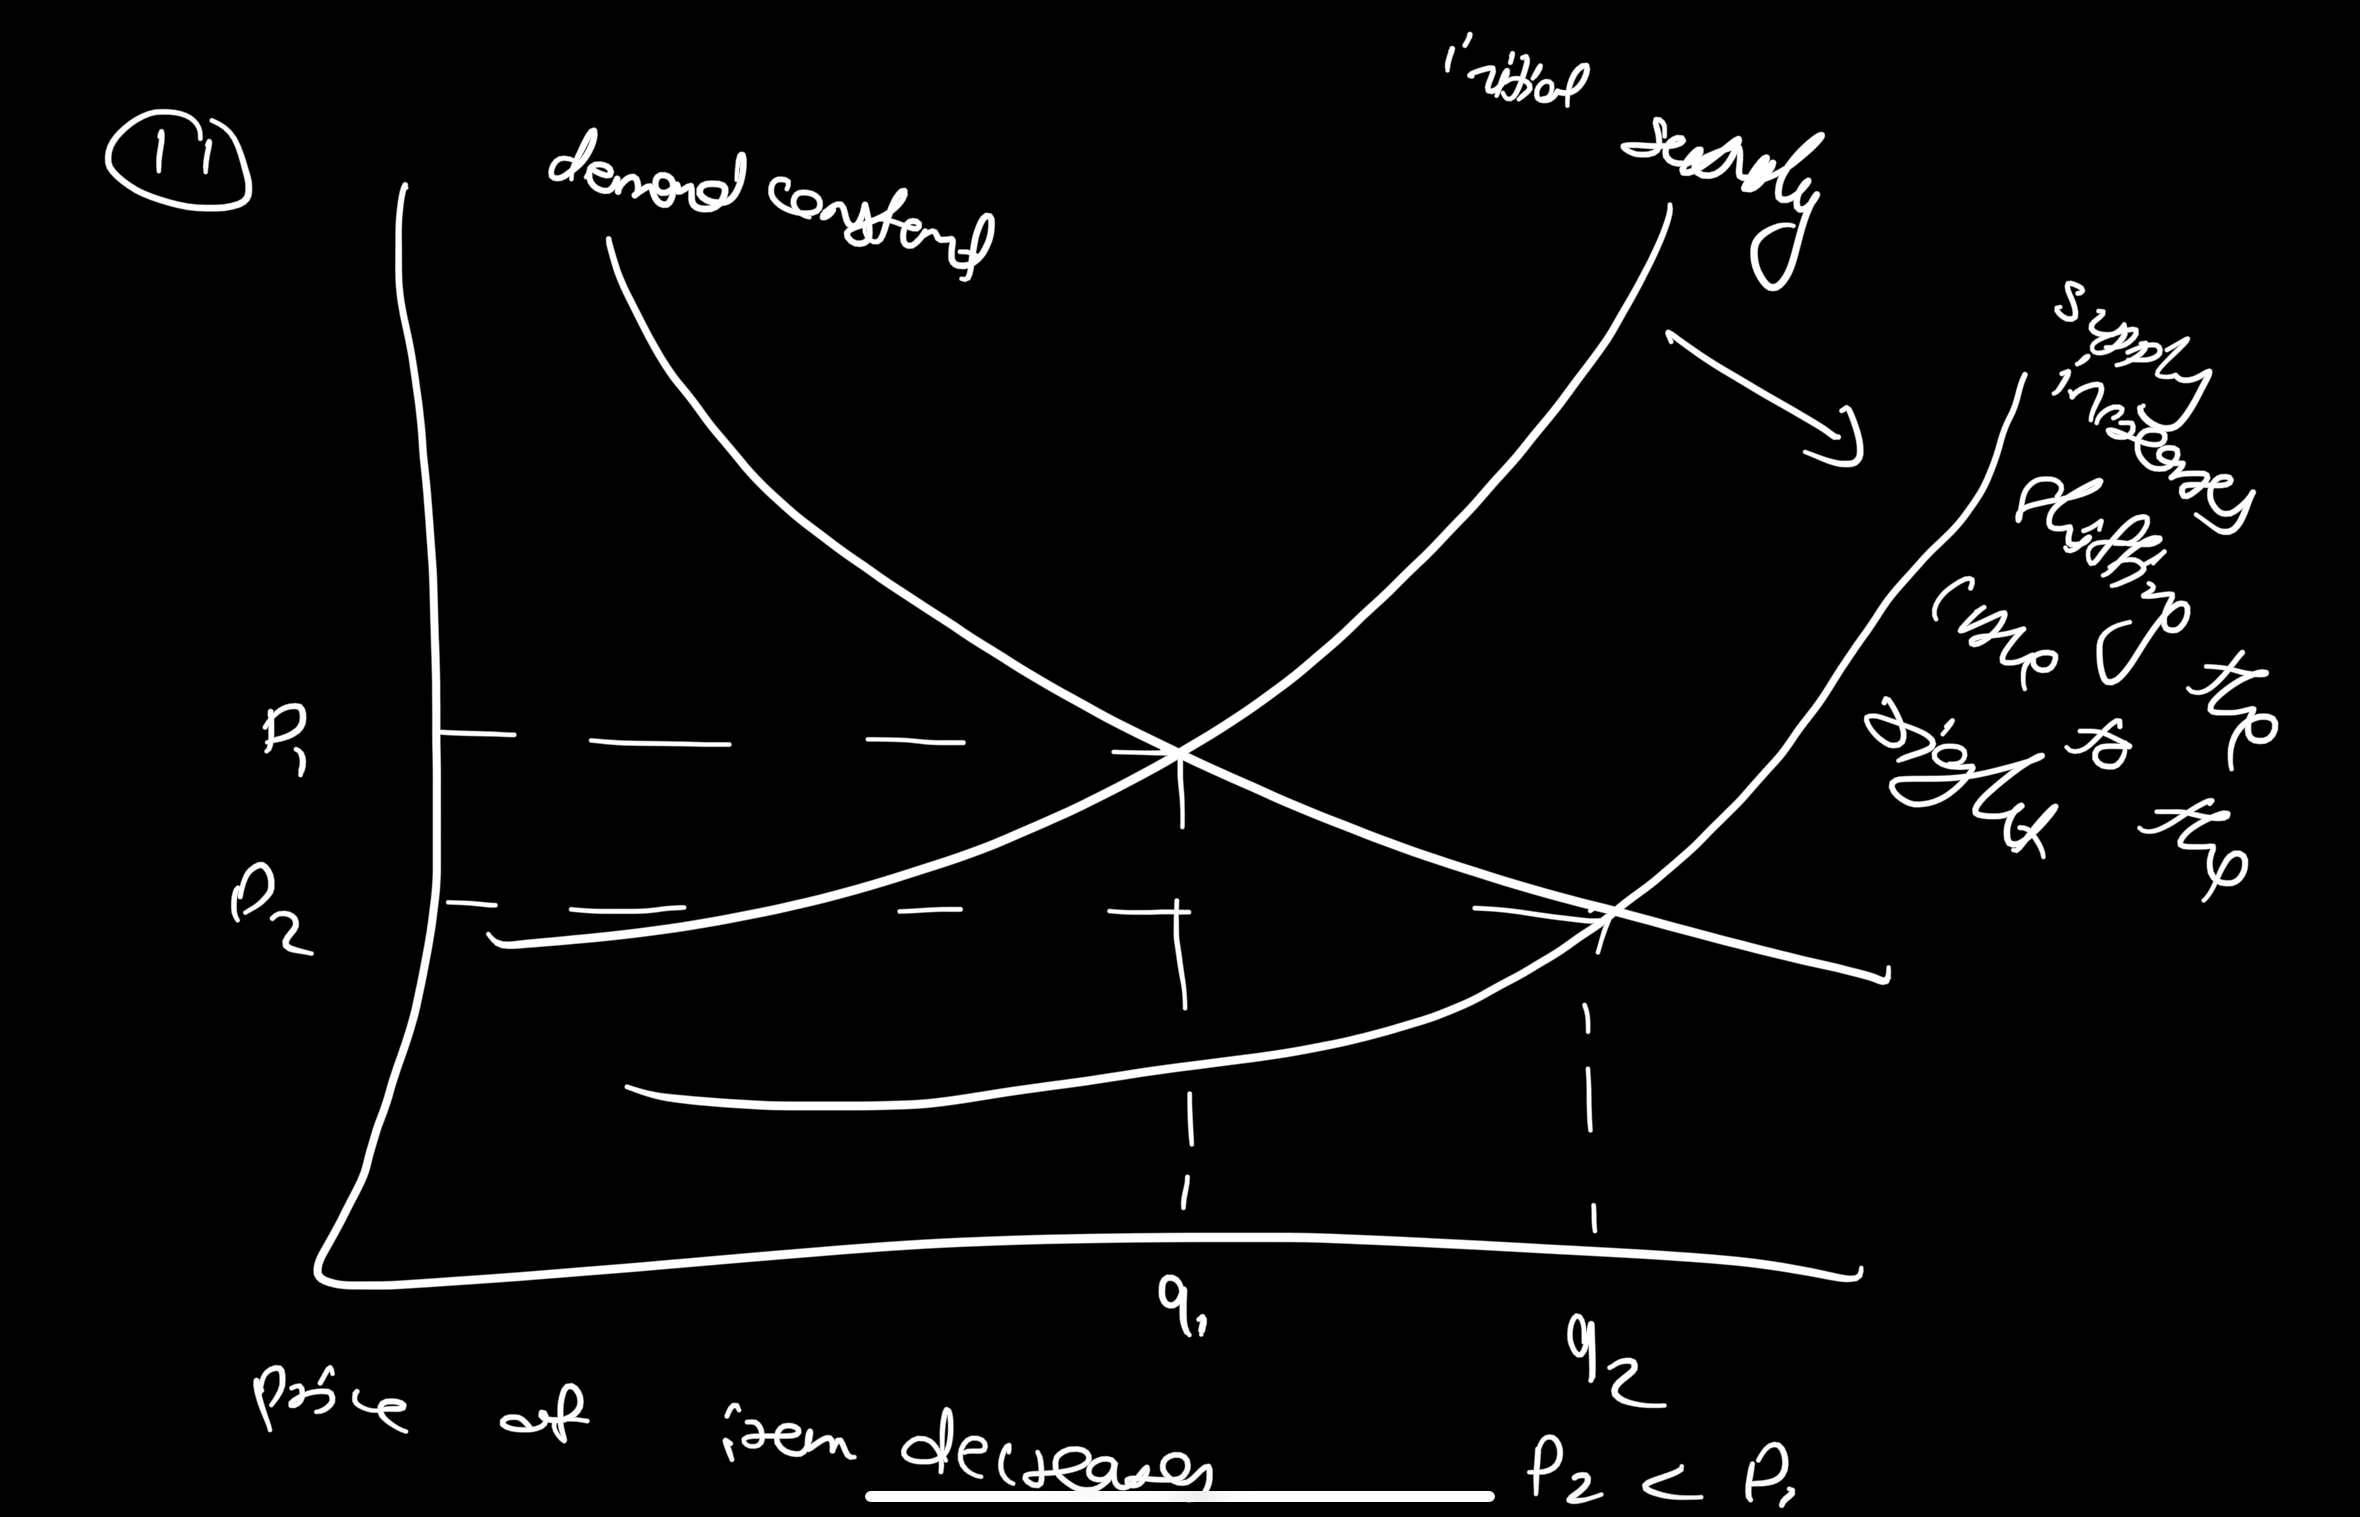 11
demand constant
initial
supply
supply
increases
shifting
curve
to the
right
P1
P2
q1
q2
price of item decreases
P2 < P1